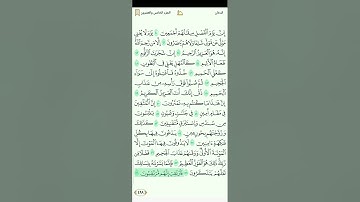 الجزء الخامس والعشرون الدخان
إِنَّ يَوْمَ ٱلْفَصْلِ مِيقَٰتُهُمْ أَجْمَعِينَ يَوْمَ لَا يُغْنِى
مَوْلًى عَن مَّوْلًى شَيْـًٔا وَلَا هُمْ يُنصَرُونَ إِلَّا مَن رَّحِمَ ٱللَّهُ
إِنَّهُۥ هُوَ ٱلْعَزِيزُ ٱلرَّحِيمُ إِنَّ شَجَرَتَ ٱلزَّقُّومِ
طَعَامُ ٱلْأَثِيمِ كَٱلْمُهْلِ يَغْلِى فِى ٱلْبُطُونِ
كَغَلْىِ ٱلْحَمِيمِ خُذُوهُ فَٱعْتِلُوهُ إِلَىٰ سَوَآءِ
ٱلْجَحِيمِ ثُمَّ صُبُّوا۟ فَوْقَ رَأْسِهِۦ مِنْ عَذَابِ
ٱلْحَمِيمِ ذُقْ إِنَّكَ أَنتَ ٱلْعَزِيزُ ٱلْكَرِيمُ
إِنَّ هَٰذَا مَا كُنتُم بِهِۦ تَمْتَرُونَ إِنَّ ٱلْمُتَّقِينَ
فِى مَقَامٍ أَمِينٍ فِى جَنَّٰتٍ وَعُيُونٍ يَلْبَسُونَ
مِن سُندُسٍ وَإِسْتَبْرَقٍ مُّتَقَٰبِلِينَ كَذَٰلِكَ
وَزَوَّجْنَٰهُم بِحُورٍ عِينٍ يَدْعُونَ فِيهَا بِكُلِّ
فَٰكِهَةٍ ءَامِنِينَ لَا يَذُوقُونَ فِيهَا ٱلْمَوْتَ إِلَّا
ٱلْمَوْتَةَ ٱلْأُولَىٰ وَوَقَىٰهُمْ عَذَابَ ٱلْجَحِيمِ فَضْلًا مِّن
رَّبِّكَ ذَٰلِكَ هُوَ ٱلْفَوْزُ ٱلْعَظِيمُ فَإِنَّمَا يَسَّرْنَٰهُ بِلِسَانِكَ
لَعَلَّهُمْ يَتَذَكَّرُونَ فَٱرْتَقِبْ إِنَّهُم مُّرْتَقِبُونَ